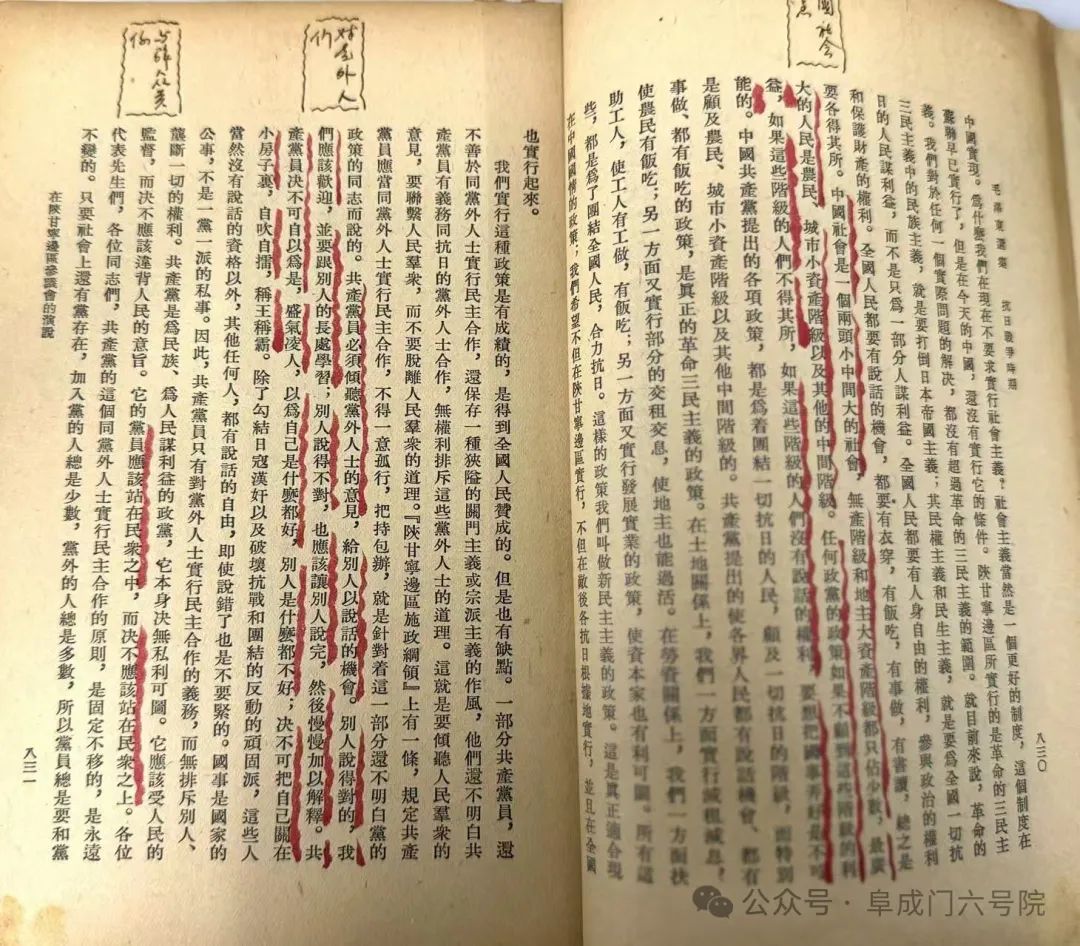 國社会
毛澤東選集 抗日戰爭時期 八三〇
中國實現。爲什麽我們在現在不要求實行社會主義?社會主義當然是一個更好的制度,這個制度在
蘇聯早已實行了,但是在今天的中國,還沒有實行它的條件。陝甘寧邊區所實行的是革命的三民主
義。我們對於任何一個實際問題的解決,都沒有超過革命的三民主義的範圍。就目前來說,革命的
三民主義中的民族主義,就是要打倒日本帝國主義;其民權主義和民生主義,就是要爲全國一切抗
日的人民謀利益,而不是只爲一部分人謀利益。全國人民都要有人身自由的權利,參與政治的權利
和保護財產的權利。全國人民都要有說話的機會,都要有衣穿,有飯吃,有事做,有書讀,總之是
要各得其所。中國社會是一個兩頭小中間大的社會,無產階級和地主大資產階級都只佔少數,最廣
大的人民是農民、城市小資產階級以及其他的中間階級。任何政黨的政策如果不顧到這些階級的利
益,如果這些階級的人們不得其所,如果這些階級的人們沒有說話的權利,要想把國事弄好是不可
能的。中國共產黨提出的各項政策,都是爲着團結一切抗日的人民,顧及一切抗日的階級,而特別
是顧及農民、城市小資產階級以及其他中間階級的。共產黨提出的使各界人民都有說話機會、都有
事做、都有飯吃的政策,是真正的革命三民主義的政策。在土地關係上,我們一方面實行減租減息,
使農民有飯吃;另一方面又實行部分的交租交息,使地主也能過活。在勞資關係上,我們一方面扶
助工人,使工人有工做,有飯吃;另一方面又實行發展實業的政策,使資本家也有利可圖。所有這
些,都是爲了團結全國人民,合力抗日。這樣的政策我們叫做新民主主義的政策。這是真正適合現
在中國國情的政策;我們希望不但在陝甘寧邊區實行,不但在敵後各抗日根據地實行,並且在全國
对党外人
与群众关
係
也實行起來。
我們實行這種政策是有成績的,是得到全國人民贊成的。但是也有缺點。一部分共產黨員,還
不善於同黨外人士實行民主合作,還保存一種狹隘的關門主義或宗派主義的作風,他們還不明白共
產黨員有義務同抗日的黨外人士合作,無權利排斥這些黨外人士的道理。這就是要傾聽人民羣衆的
意見,要聯繫人民羣衆,而不要脫離人民羣衆的道理。『陝甘寧邊區施政綱領』上有一條,規定共產
黨員應當同黨外人士實行民主合作,不得一意孤行,把持包辦,就是針對着這一部分還不明白黨的
政策的同志而說的。共產黨員必須傾聽黨外人士的意見,給別人以說話的機會。別人說得對的,我
們應該歡迎,並要跟別人的長處學習;別人說得不對,也應該讓別人說完,然後慢慢加以解釋。共
產黨員决不可自以爲是,盛氣凌人,以爲自己是什麽都好,別人是什麽都不好;决不可把自己關在
小房子裏,自吹自擂,稱王稱霸。除了勾結日寇漢奸以及破壞抗戰和團結的反動的頑固派,這些人
當然沒有說話的資格以外,其他任何人,都有說話的自由,即使說錯了也是不要緊的。國事是國家的
公事,不是一黨一派的私事。因此,共產黨員只有對黨外人士實行民主合作的義務,而無排斥別人、
壟斷一切的權利。共產黨是爲民族、爲人民謀利益的政黨,它本身决無私利可圖。它應該受人民的
監督,而决不應該違背人民的意旨。它的黨員應該站在民衆之中,而决不應該站在民衆之上。各位
代表先生們,各位同志們,共產黨的這個同黨外人士實行民主合作的原則,是固定不移的,是永遠
不變的。只要社會上還有黨存在,加入黨的人總是少數,黨外的人總是多數,所以黨員總是要和黨
在陝甘寧邊區參議會的演說
八三一
公众号·阜成门六号院